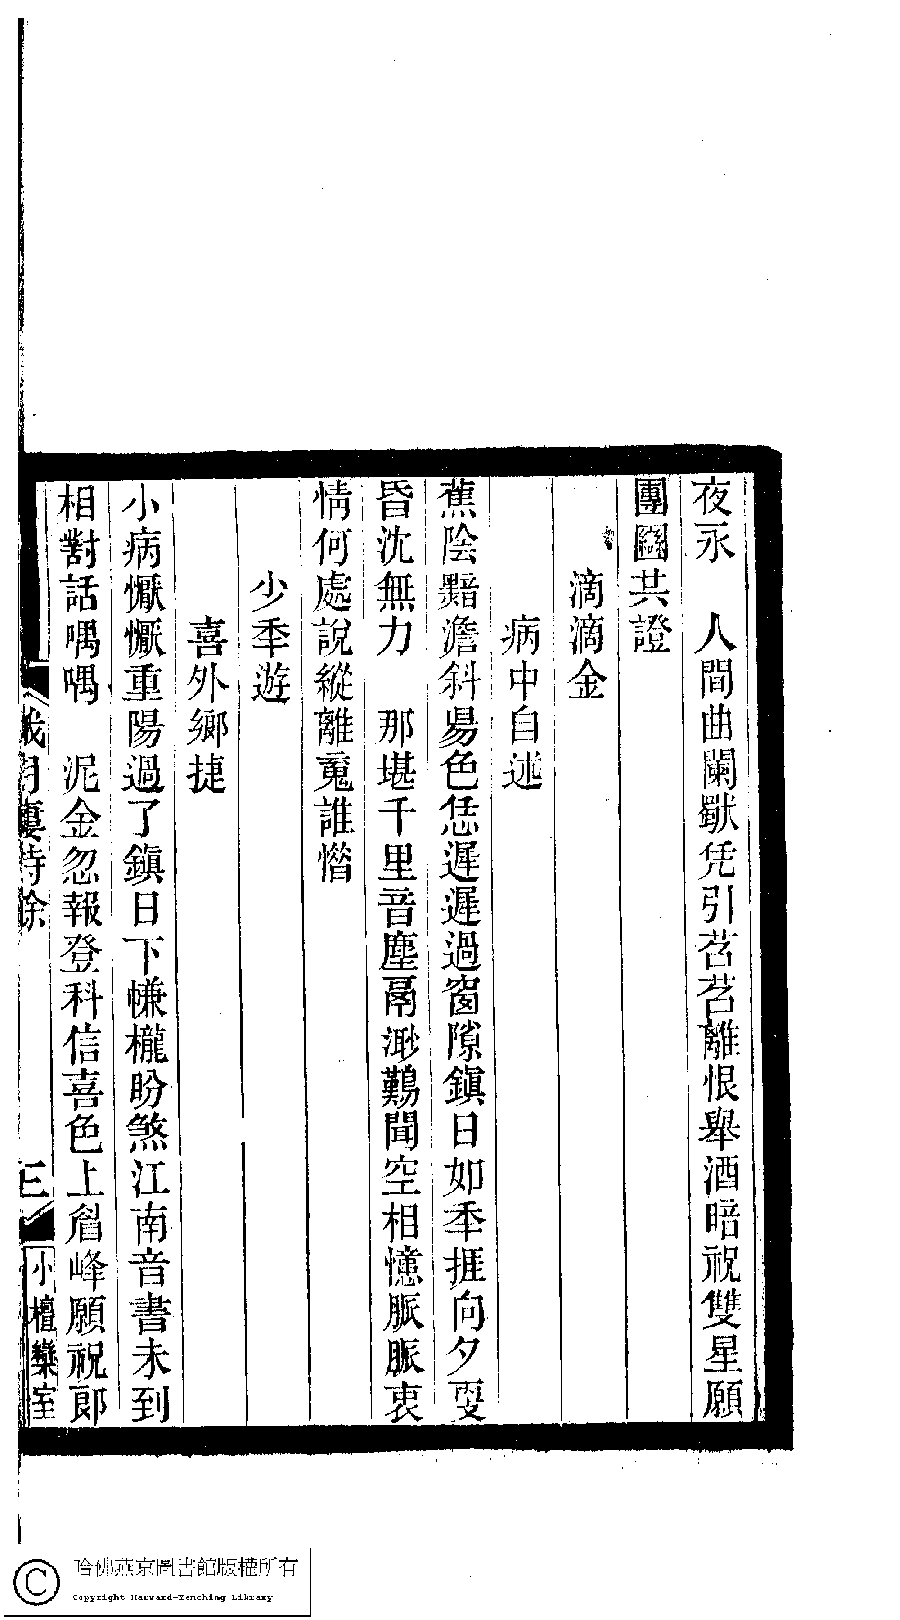 夜永　人間曲闌猒凭引苕苕離恨舉酒暗祝雙星願
團圞共證
滴滴金
病中自述
蕉陰黯澹斜昜色恁遲遲過窗隙鎮日如秊捱向夕叓
昏沈無力　那堪千里音塵鬲渺鷬聞空相憶脈脈衷
情何處說縱離䰟誰惜
少秊遊
喜外鄉捷
小病懨懨重陽過了鎮日下㡘櫳盼煞江南音書未到
相對話喁喁　泥金忽報登科信喜色上眉峰願祝郎
三
小檀欒室
哈佛燕京圖書館版權所有
Copyright Harvard-Yenching Library